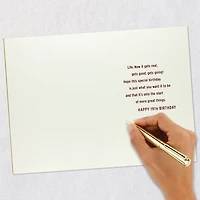 Life: Now it gets real,
gets good, gets going!
Hope this special birthday
is just what you want it to be
and that it's only the start
of more great things.
HAPPY 19TH BIRTHDAY